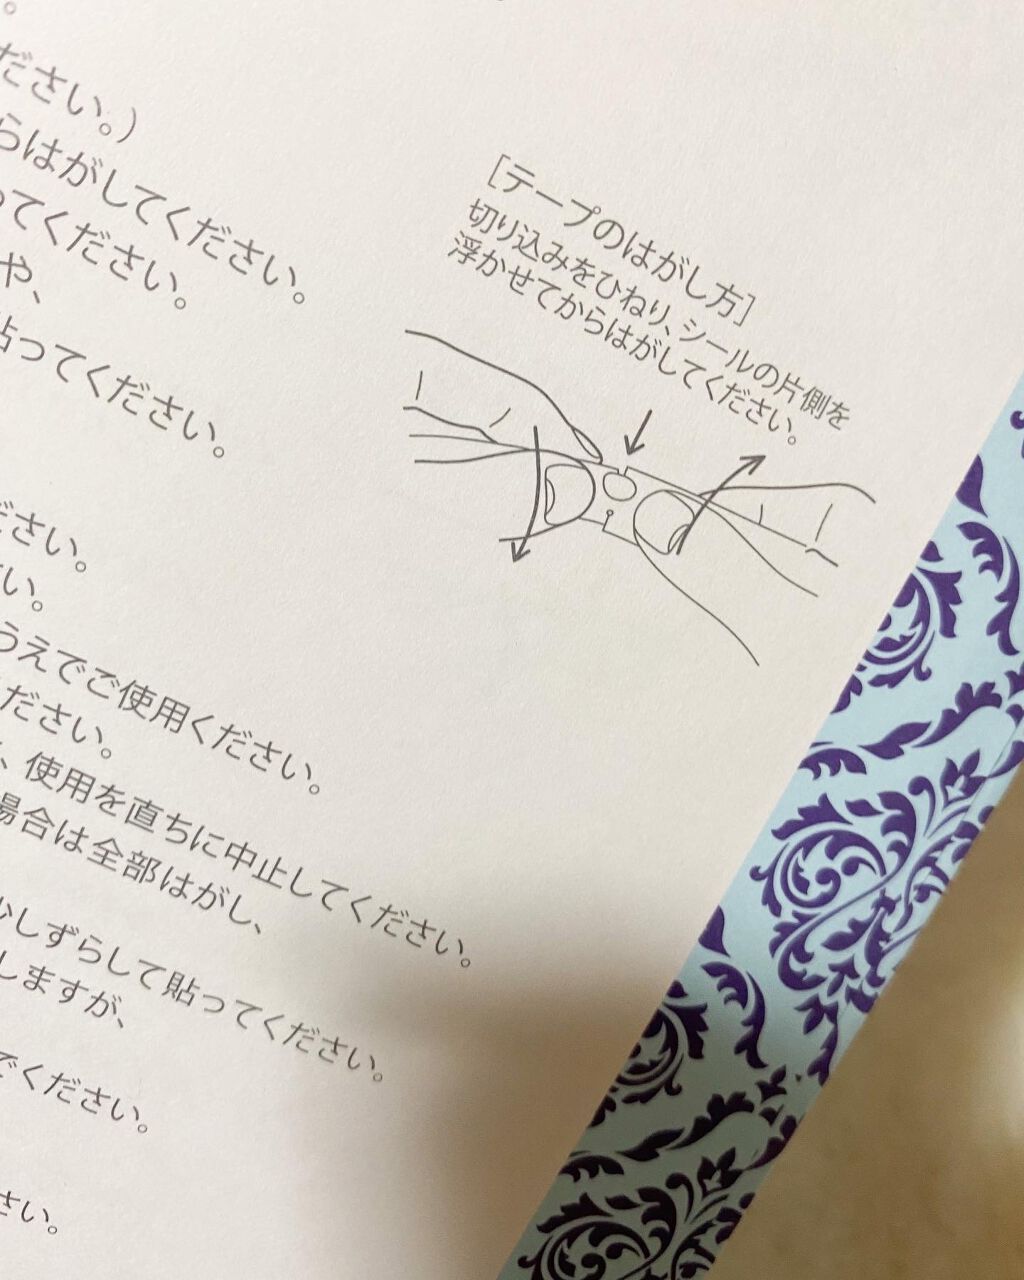 ださい。)
らはがしてください。
ってください。
や、
貼ってください。
[テープのはがし方]
切り込みをひねり、シールの片側を
浮かせてからはがしてください。
ださい。
い。
うえでご使用ください。
ください。
、使用を直ちに中止してください。
場合は全部はがし、
少しずらして貼ってください。
しますが、
でください。
さい。